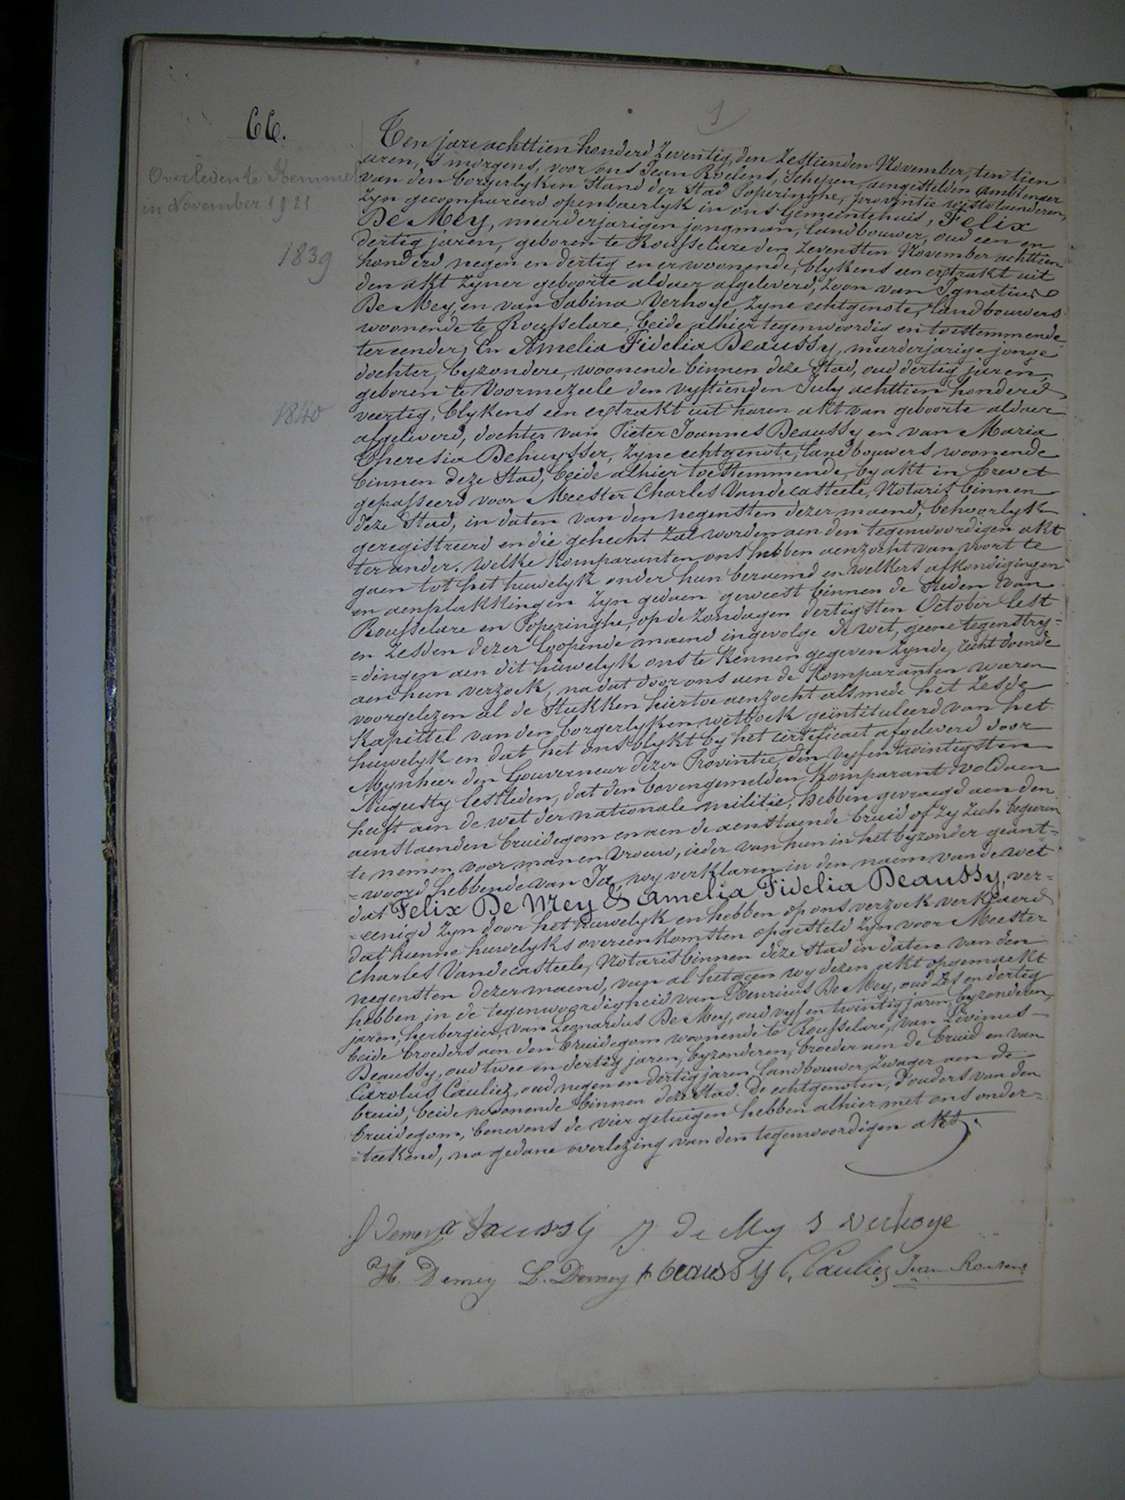 66.
Overleden te Kemmel
in November 1921
1839
1840
1
Ten jare achttien honderd zeventig, den zestienden November, ten tien
uren, 's morgens, voor ons Jean Roelens, Schepen, aengestelden Ambtenaer
van den borgerlyken Stand der Stad Poperinghe, provintie Westvlaenderen,
Zyn gecompareerd openbaerlyk in ons Gemeentehuis, Felix
De Mey, meerderjarigen jongman, landbouwer, oud een en
dertig jaren, geboren te Rousselare den zevensten November achttien
honderd negen en dertig en er woonende, blykens een extrakt uit
den akt zyner geboorte aldaer afgeleverd, zoon van Ignatius
De Mey, en van Sabina Verhoye zyne echtgenote, landbouwers
woonende te Rousselare, beide alhier tegenwoordig en toestemmende
ter eender; En Amelia Fidelia Beaussy, meerderjarige jonge
dochter, byzondere, woonende binnen deze Stad, oud dertig jaren,
geboren te Voormezeele den vyftienden July achttien honderd
veertig, blykens een extrakt uit haren akt van geboorte aldaer
afgeleverd, dochter van Pieter Joannes Beaussy en van Maria
Theresia Dehuysser, zyne echtgenote, landbouwers woonende
binnen deze Stad, beide alhier toestemmende, by akt in brevet
gepasseerd voor Meester Charles Vandecasteele, Notaris binnen
deze Stad, in daten van den negensten dezer maend, behoorlyk
geregistreerd en die gehecht zal worden aen den tegenwoordigen akt
ter ander. Welke Komparanten ons hebben aenzocht van voort te
gaen tot het huwelyk onder hun beraemd en welkers afkondigingen
en aenplakkingen zyn gedaen geweest binnen de Steden van
Rousselare en Poperinghe, op de Zondagen dertigsten October lest
en zesden dezer loopende maend ingevolge de wet, geene tegenstry=
=dingen aen dit huwelyk ons te kennen gegeven zynde, recht doende
aen hun verzoek, na dat door ons aen de Komparanten waren
voorgelezen al de Stukken hiertoe aenzocht alsmede het zesde
Kapittel van den borgerlyken wetboek geïntituleerd van het
huwelyk en dat het ons blykt by het certificaet afgeleverd door
Mynheer den Gouverneur dezer Provintie, den vyf en twintigsten
Augusty lestleden, dat den bovengemelden Komparant voldaen
heeft aen de wet der nationale militie, hebben gevraegd aen den
aenstaenden bruidegom en aen de aenstaende bruid of zy zich begeren
te nemen voor man en vrouw, ieder van hun in het byzonder geant=
=woord hebbende van Ja, wy verklaren in den naem van de wet
dat Felix De Mey & Amelia Fidelia Beaussy, ver=
=eenigd zyn door het huwelyk en hebben op ons verzoek verklaerd
dat hunne huwelyks overeenkomsten opgesteld zyn voor Meester
Charles Vandecasteele, Notaris binnen deze Stad in daten van den
negensten dezer maend, van al hetgeen wy dezen akt opgemaekt
hebben in de tegenwoordigheid van Henricus De Mey, oud zes en dertig
jaren, herbergier, van Leonardus De Mey, oud vyf en twintig jaren, byzonderen,
beide broeders aen den bruidegom woonende te Rousselare, van Livinus
Beaussy, oud twee en dertig jaren, byzonderen, broeder aen de bruid en van
Carolus Cauliez, oud negen en dertig jaren, landbouwer, zwager aen de
bruid, beide woonende binnen deze Stad. De echtgenoten, d'ouders van den
bruidegom, benevens de vier getuigen hebben alhier met ons onder=
=teekend, na gedane overlezing van den tegenwoordigen akt.
f Demey a Beaussy J De Mey S Verhoye
H. Demey L. Demey L beaussy C, Cauliez Jean Roelens